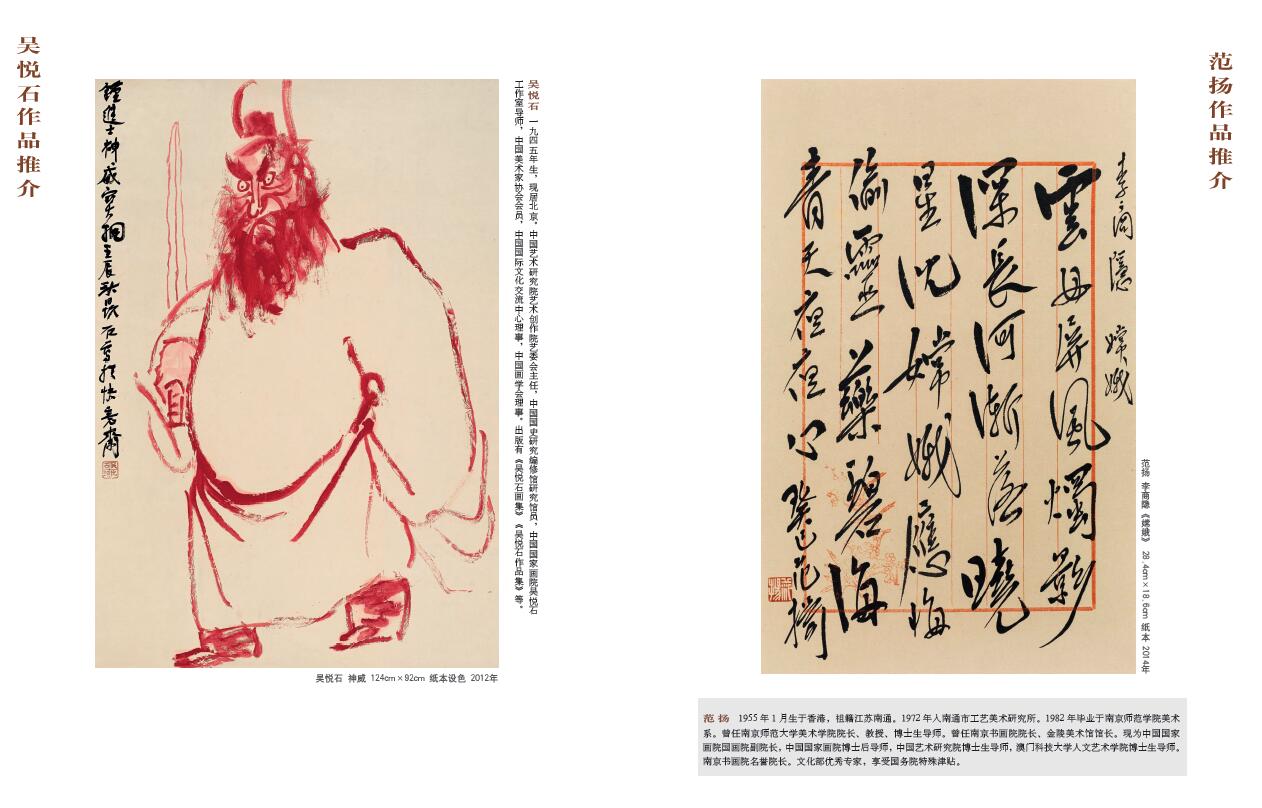 吴悦石作品推介
鍾進士神威寶相壬辰秋悦石寫於快
吴悦石 一九四五年生，现居北京。中国艺术研究院艺术创作院艺委会主任，中国国史研究编修馆研究馆员，中国国家画院吴悦石
工作室导师，中国美术家协会会员，中国国际文化交流中心理事，中国画学会理事。出版有《吴悦石画集》《吴悦石作品集》等。
吴悦石 神威 124cm×92cm 纸本设色 2012年
范扬作品推介
李商隱 嫦娥
雲母屏風燭影
深長河漸落曉
星沈嫦娥應悔
偷靈藥碧海
青天夜夜心 癸巳范揚
范扬 李商隐《嫦娥》 28.4cm×18.6cm 纸本 2014年
范扬 1955年1月生于香港，祖籍江苏南通。1972年入南通市工艺美术研究所。1982年毕业于南京师范学院美术
系。曾任南京师范大学美术学院院长、教授、博士生导师。曾任南京书画院院长、金陵美术馆馆长。现为中国国家
画院国画院副院长，中国国家画院博士后导师，中国艺术研究院博士生导师，澳门科技大学人文艺术学院博士生导师。
南京书画院名誉院长。文化部优秀专家，享受国务院特殊津贴。